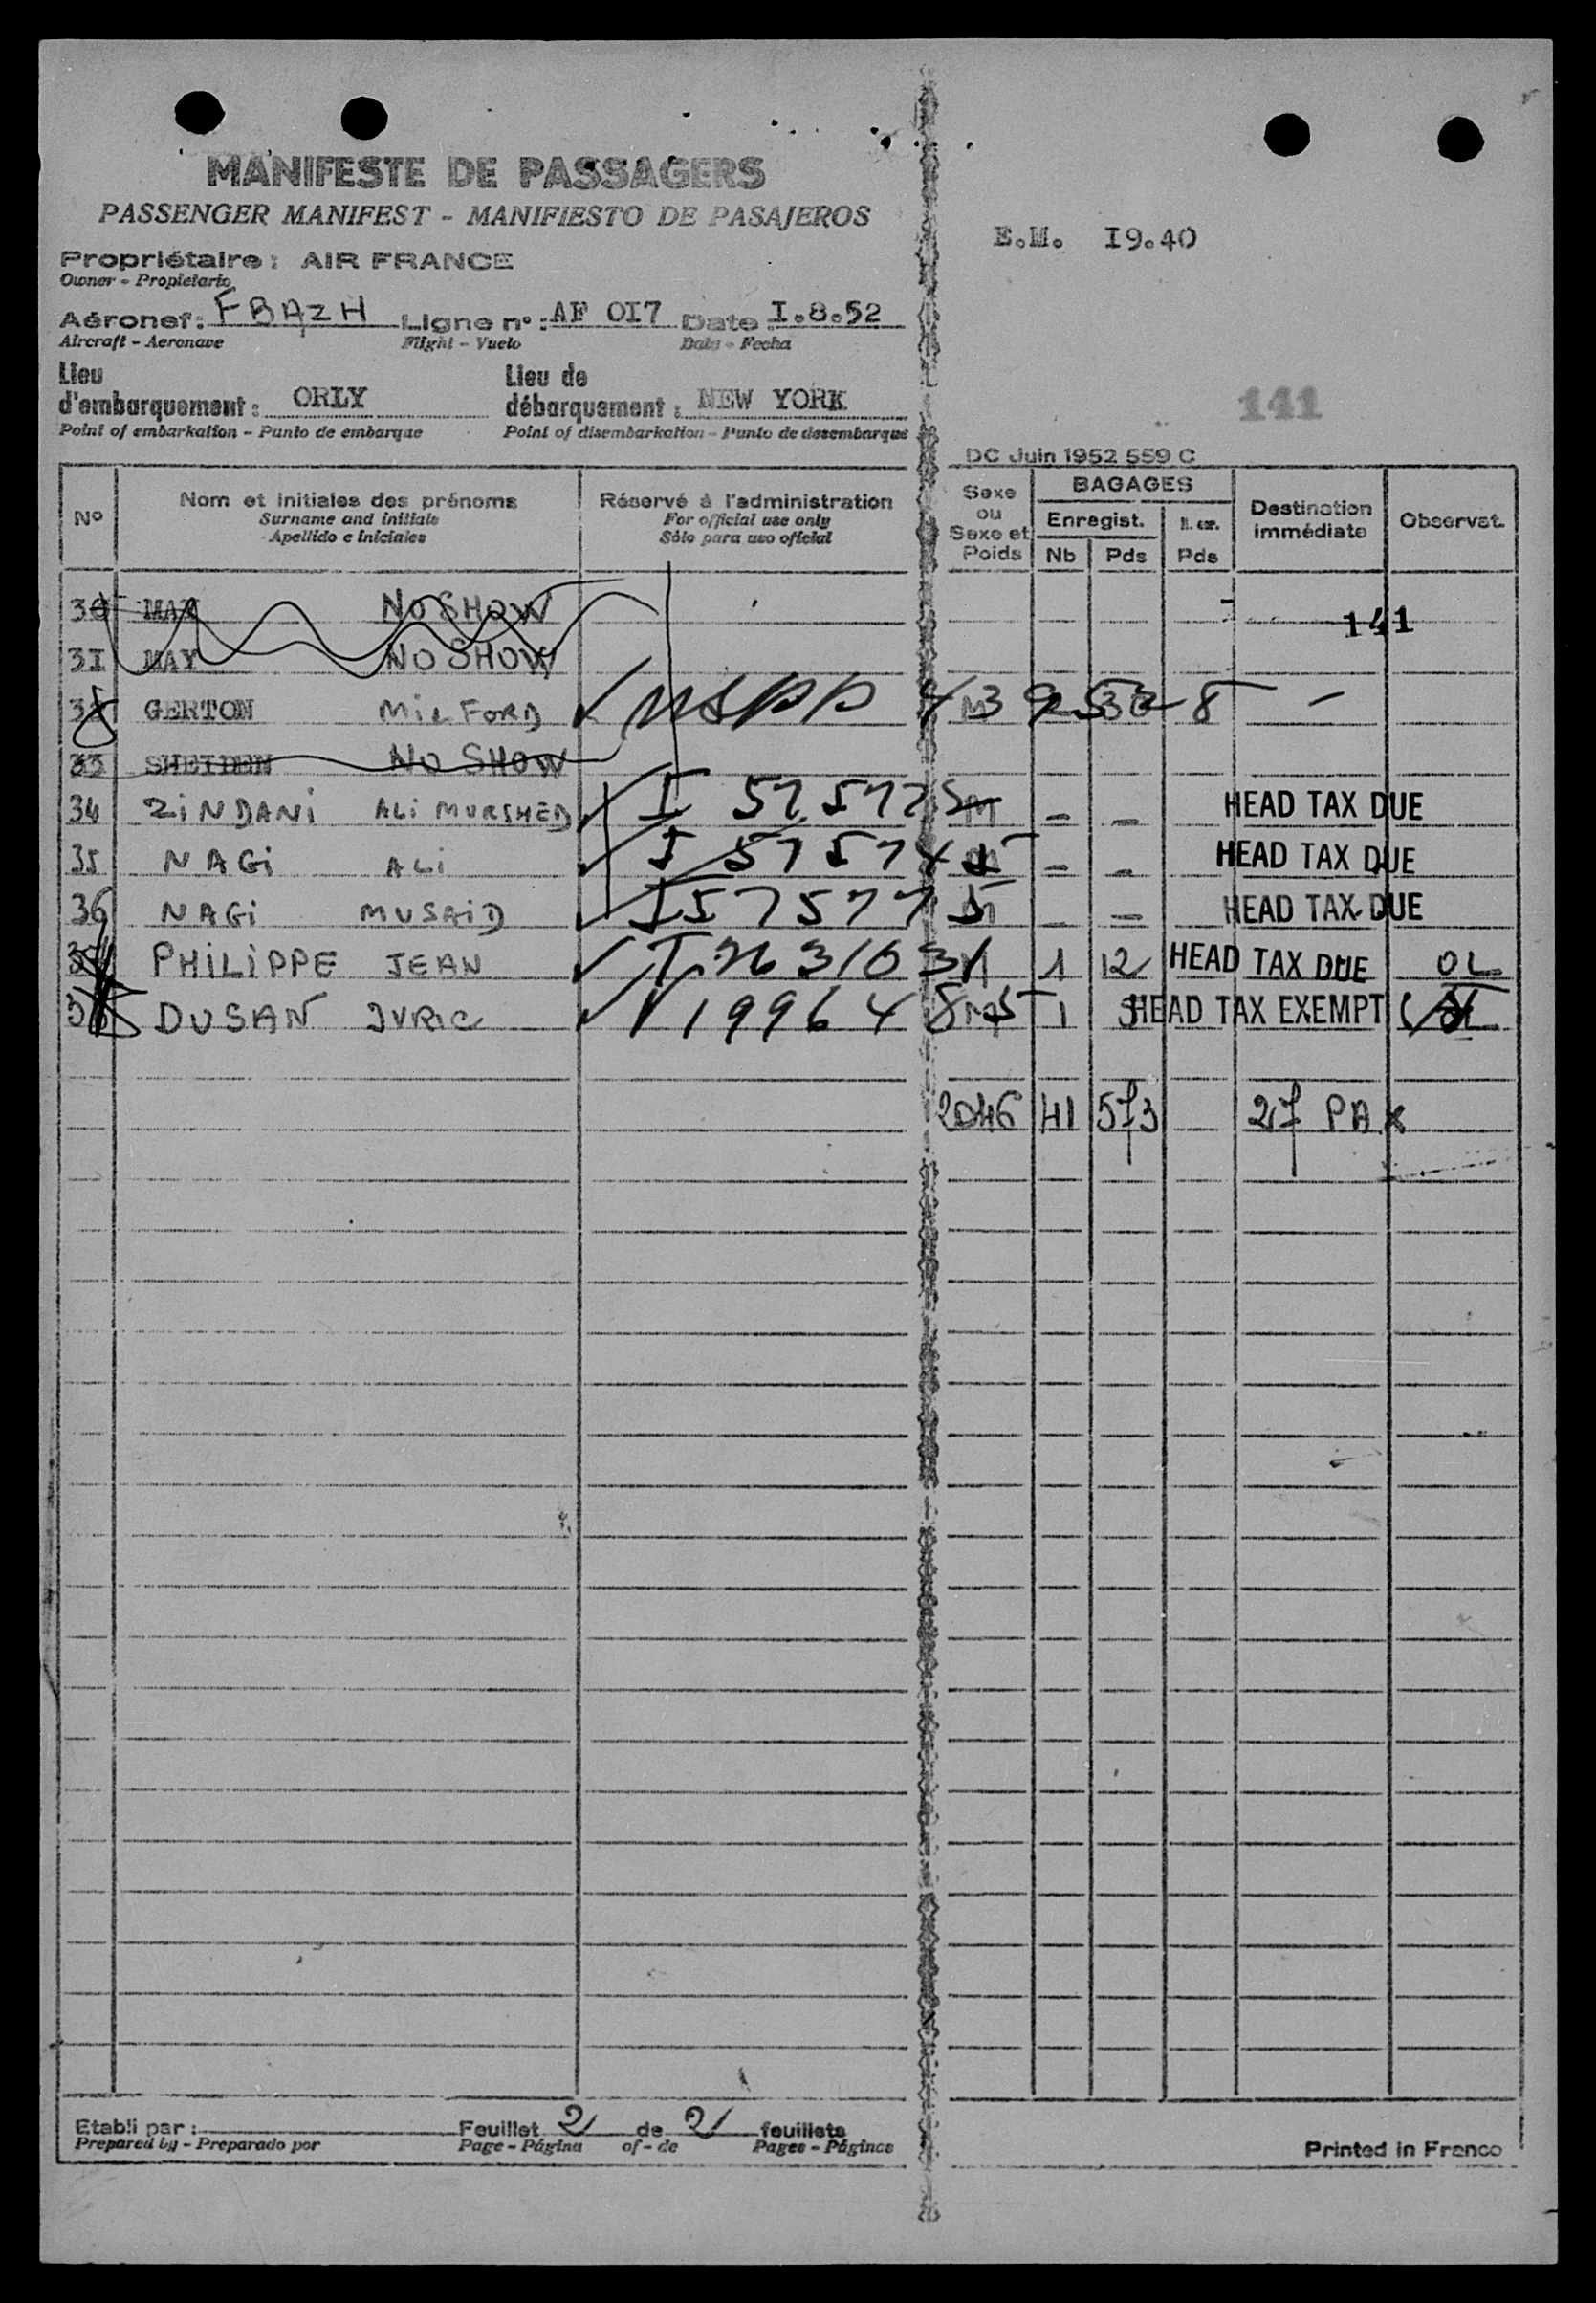 MANIFESTE DE PASSAGERS
PASSENGER MANIFEST - MANIFIESTO DE PASAJEROS
E.M. I9.40
Propriétaire : AIR FRANCE
Owner - Propietario
Aéronef : FBAZH Ligne n° : AF OI7 Date : I.8.52
Aircraft - Aeronave Flight - Vuelo Date - Fecha
Lieu d'embarquement : ORLY Lieu de débarquement : NEW YORK
Point of embarkation - Punto de embarque Point of disembarkation - Punto de desembarque
141
DC Juin 1952 559 C
N° Nom et initiales des prénoms Réservé à l'administration Sexe ou Sexe et Poids BAGAGES Destination immédiate Observat.
Surname and initials For official use only Enregist.
Apellido e iniciales Sólo para uso oficial Nb Pds Pds
30 MAY NO SHOW
141
3I MAY NO SHOW
GERTON MILFORD USPP
33 NO SHOW
34 ZINDANI ALI MURSHED M - - HEAD TAX DUE
35 NAGI ALI - - HEAD TAX DUE
36 NAGI MUSAID M - - HEAD TAX DUE
PHILIPPE JEAN M 1 12 HEAD TAX DUE OL
DUSAN JURIC M 1 HEAD TAX EXEMPT
2046 41 573 27 PAX
Etabli par :
Prepared by - Preparado por
Feuillet 2 de 2 feuillets
Page - Página of - de Pages - Páginas
Printed in France